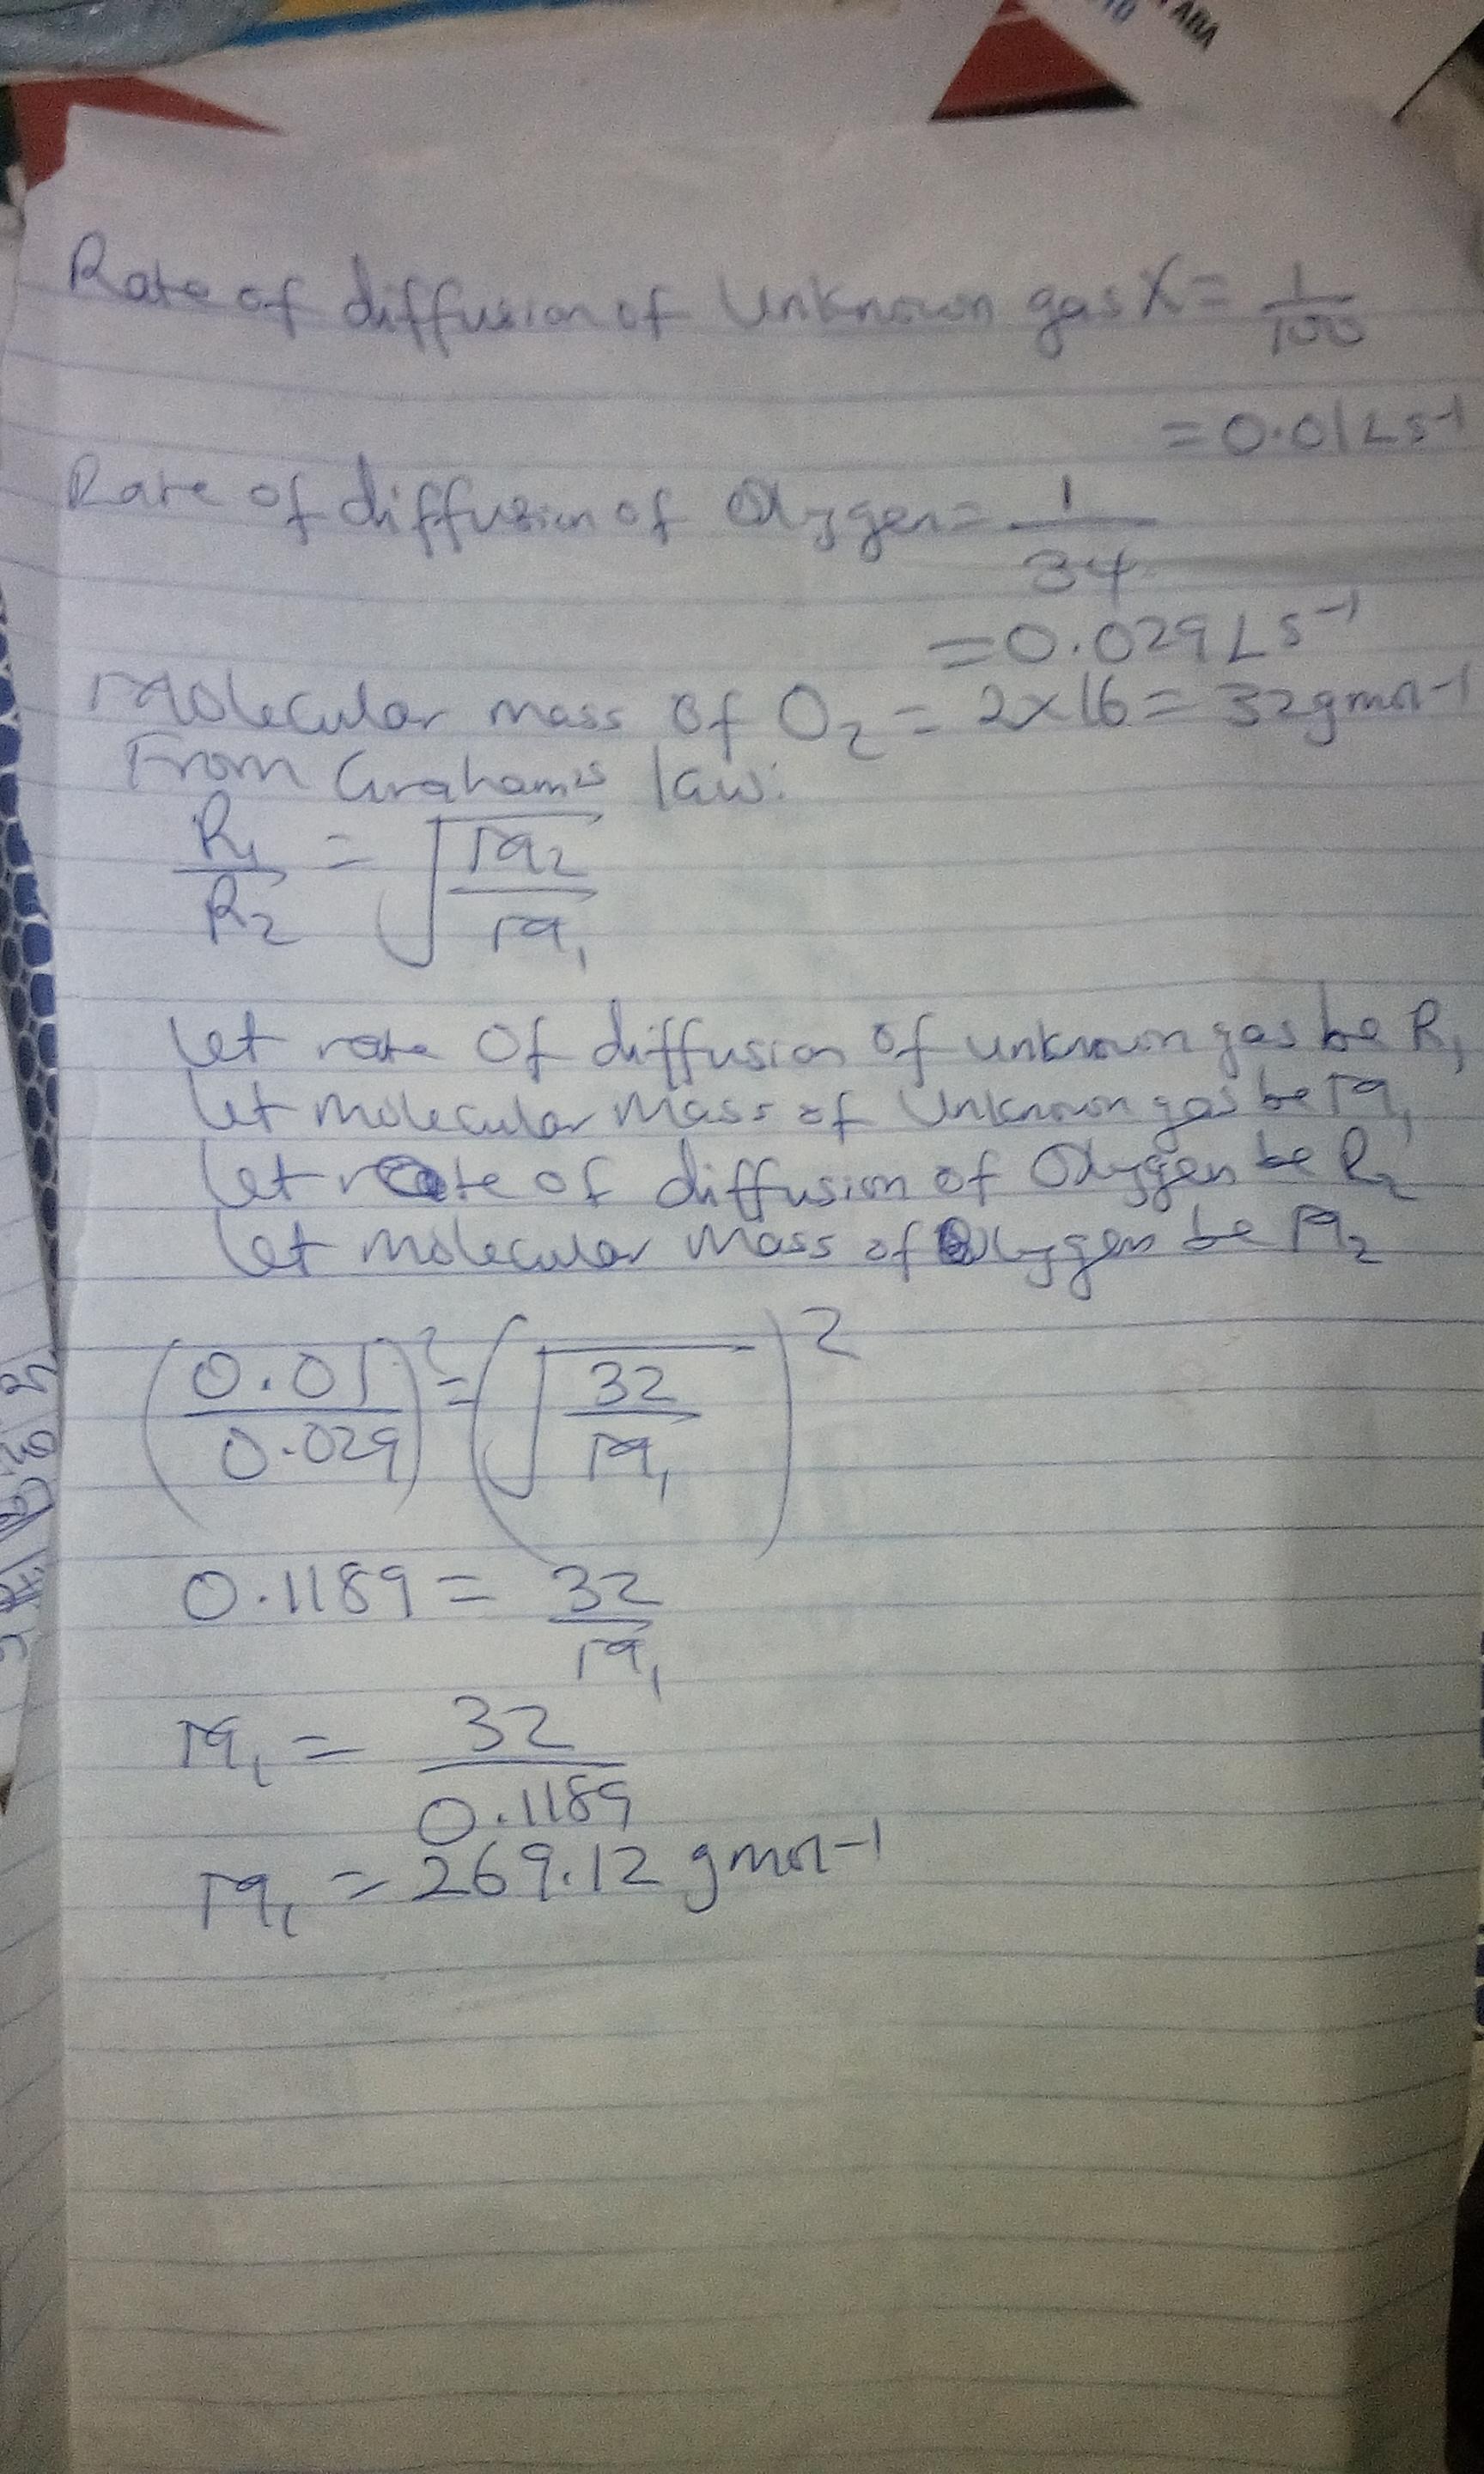 ABA
Rate of diffusion of Unknown gas X = 1/100
= 0.01Ls-1
Rate of diffusion of Oxygen = 1/34
= 0.029Ls-1
Molecular mass of O2 = 2x16 = 32gmol-1
From Graham's law:
R1/R2 = √(M2/M1)
Let rate of diffusion of unknown gas be R1
Let molecular Mass of Unknown gas be M1
Let rate of diffusion of Oxygen be R2
Let molecular Mass of Oxygen be M2
(0.01/0.029)2 = (√(32/M1))2
0.1189 = 32/M1
M1 = 32/0.1189
M1 = 269.12 gmol-1